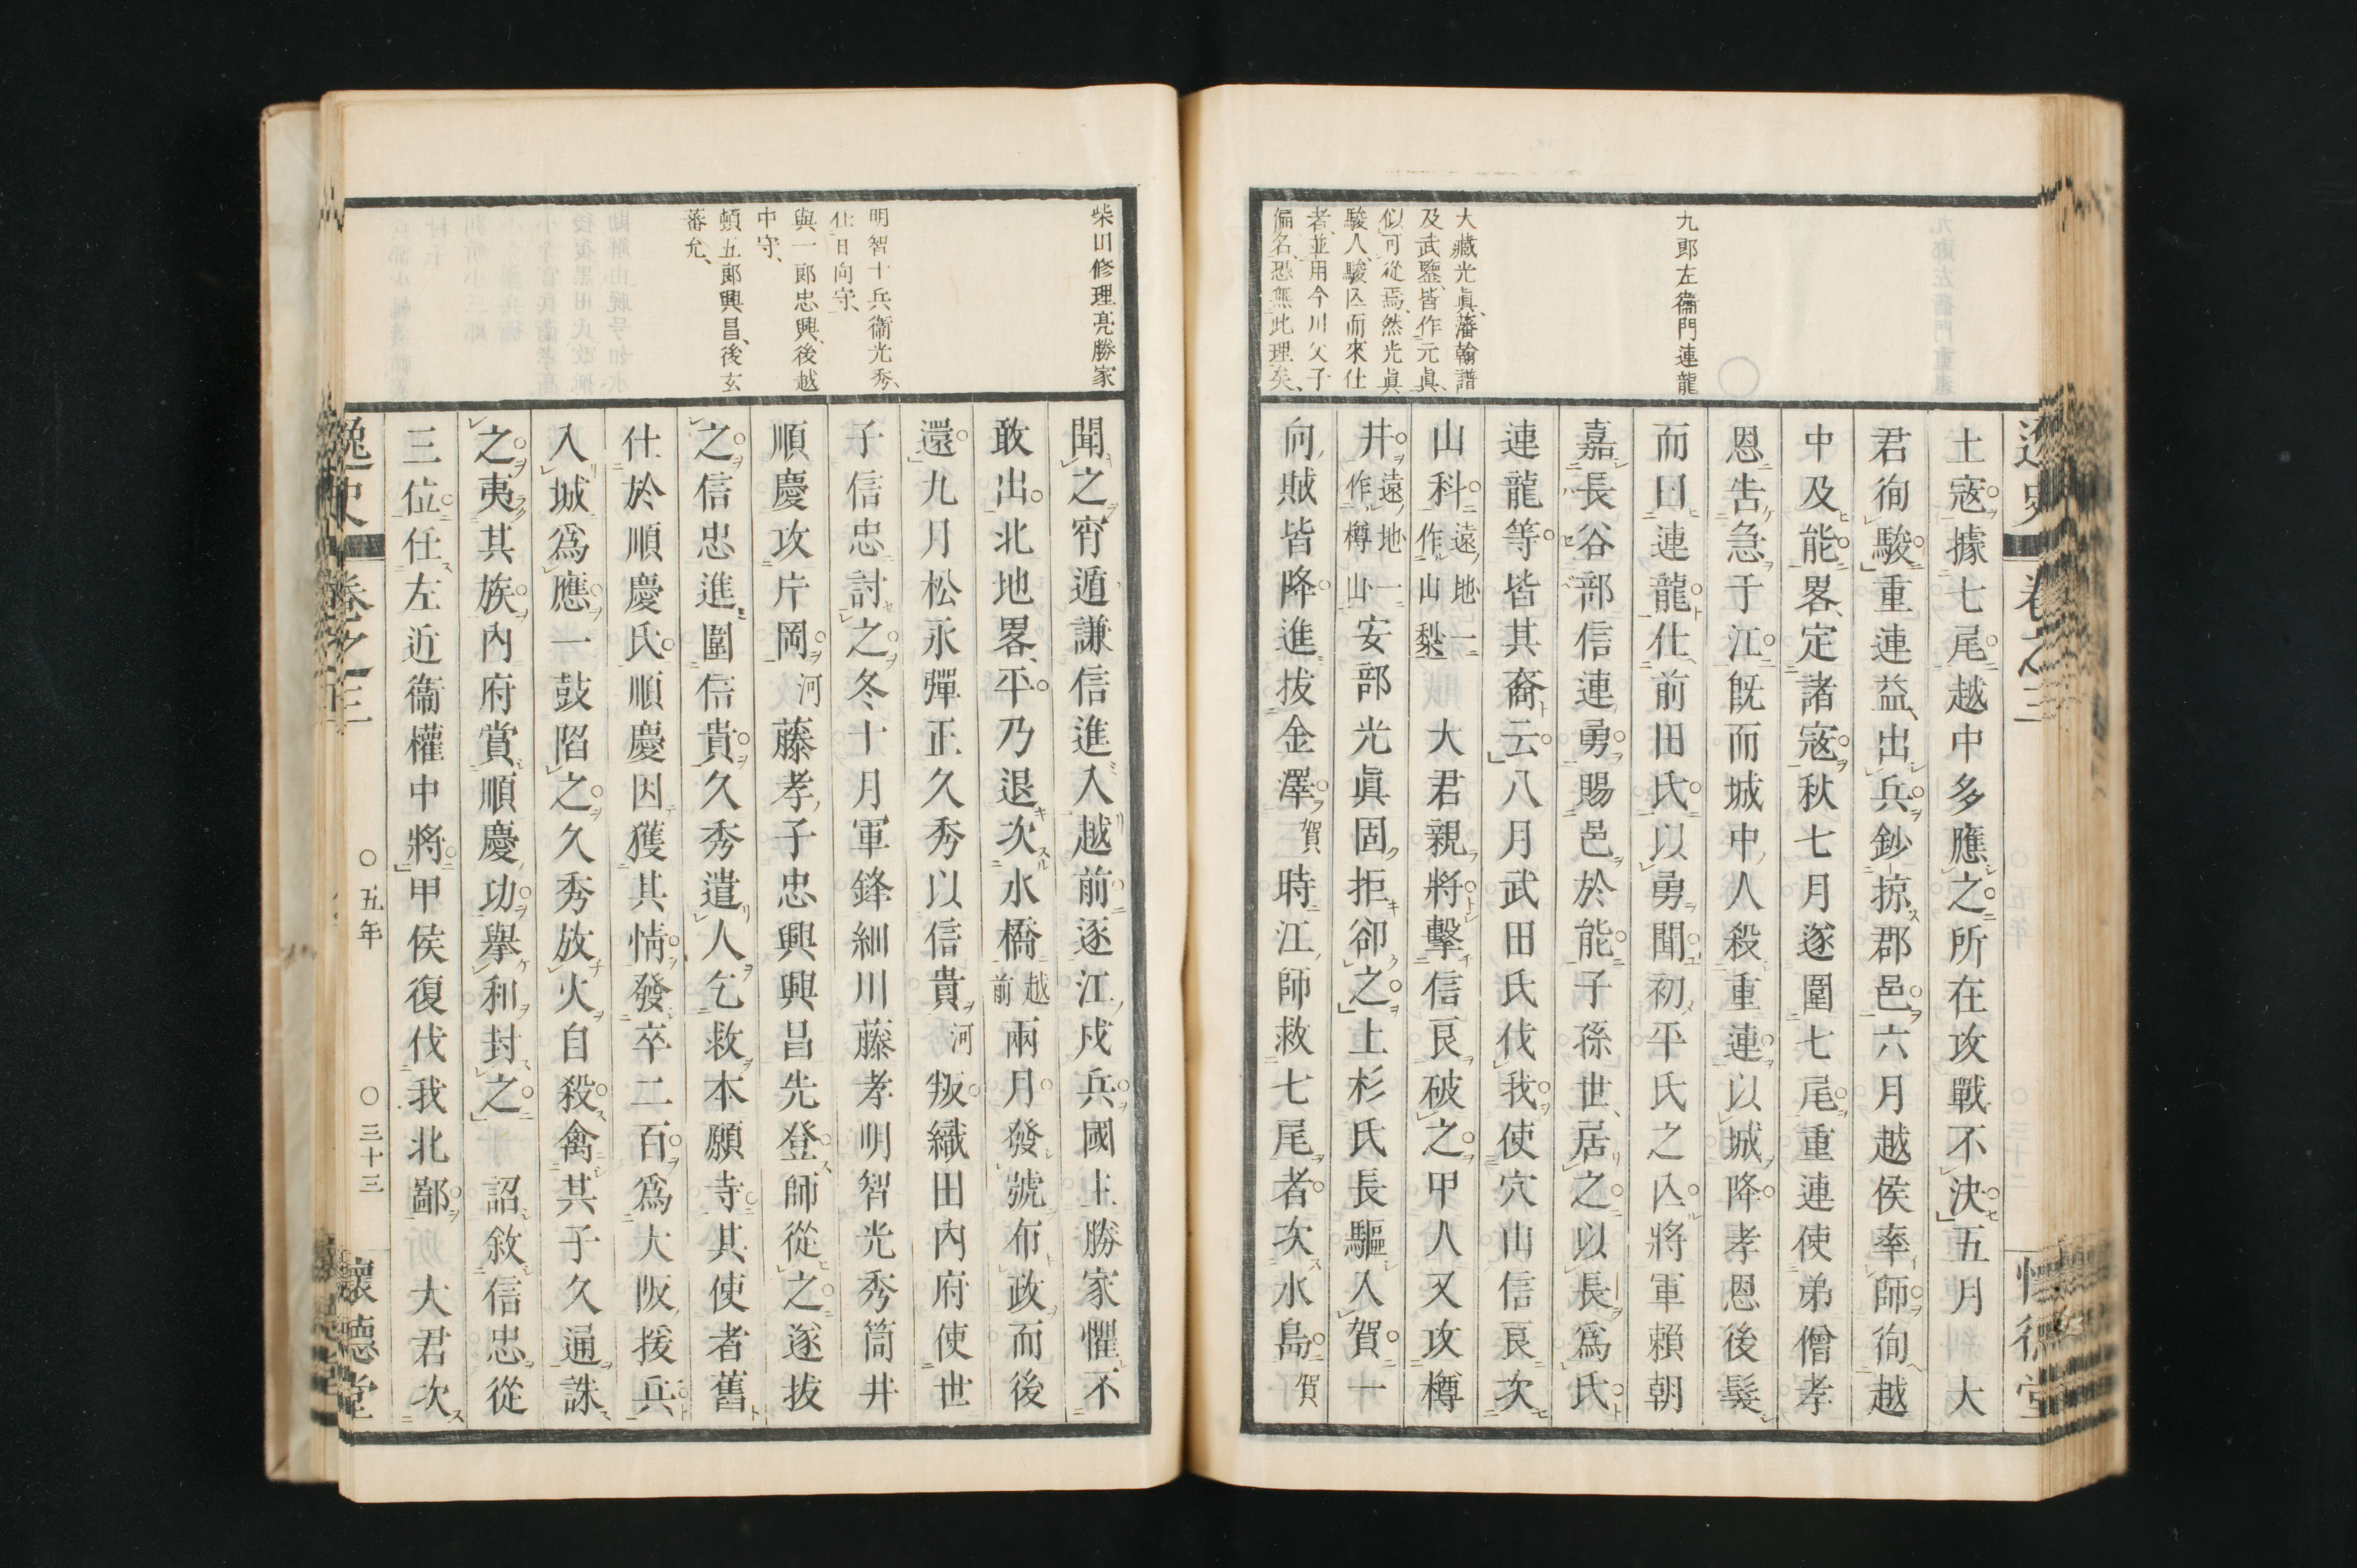 逸史 卷之三
懷德堂
九郎左衞門連龍
大藏光眞、藩翰譜
及武鑒、皆作元眞、
似可從焉、然光眞
駿人、駿亾而來仕
者、並用今川父子
偏名、恐無此理矣、
土寇據七尾越中多應之所在攻戰不決五月 大
君徇駿重連益出兵鈔掠郡邑六月越侯率師徇越
中及能畧、定諸寇秋七月遂圍七尾重連使弟僧孝
恩告急于江既而城中人殺重連以城降孝恩後髮
而曰連龍仕前田氏以勇聞初平氏之亾將軍賴朝
嘉長谷部信連勇賜邑於能子孫世居之以長爲氏
連龍等皆其裔云八月武田氏伐我使穴山信良次
山科遠地一作山梨 大君親將擊信良破之甲人又攻樽
井遠地一作樽山安部光眞固拒卻之上杉氏長驅入賀一
向賊皆降進拔金澤賀時江師救七尾者次水島賀
柴田修理亮勝家
明智十兵衞光秀、
仕日向守、
與一郞忠興、後越
中守、
頓五郞興昌、後玄
蕃允、
聞之宵遁謙信進入越前逐江戍兵國主勝家懼不
敢出北地畧平乃退次水橋越前兩月發號布政而後
還九月松永彈正久秀以信貴河叛織田內府使世
子信忠討之冬十月軍鋒細川藤孝明智光秀筒井
順慶攻片岡河藤孝子忠興興昌先登師從之遂拔
之信忠進圍信貴久秀遣人乞救本願寺其使者舊
仕於順慶氏順慶因獲其情發卒二百爲大阪援兵
入城爲應一鼓陷之久秀放火自殺禽其子久通誅
之夷其族內府賞順慶功擧和封之 詔敘信忠從
三位任左近衞權中將甲侯復伐我北鄙 大君次
逸史 卷之三 ○五年 ○三十三 懷德堂